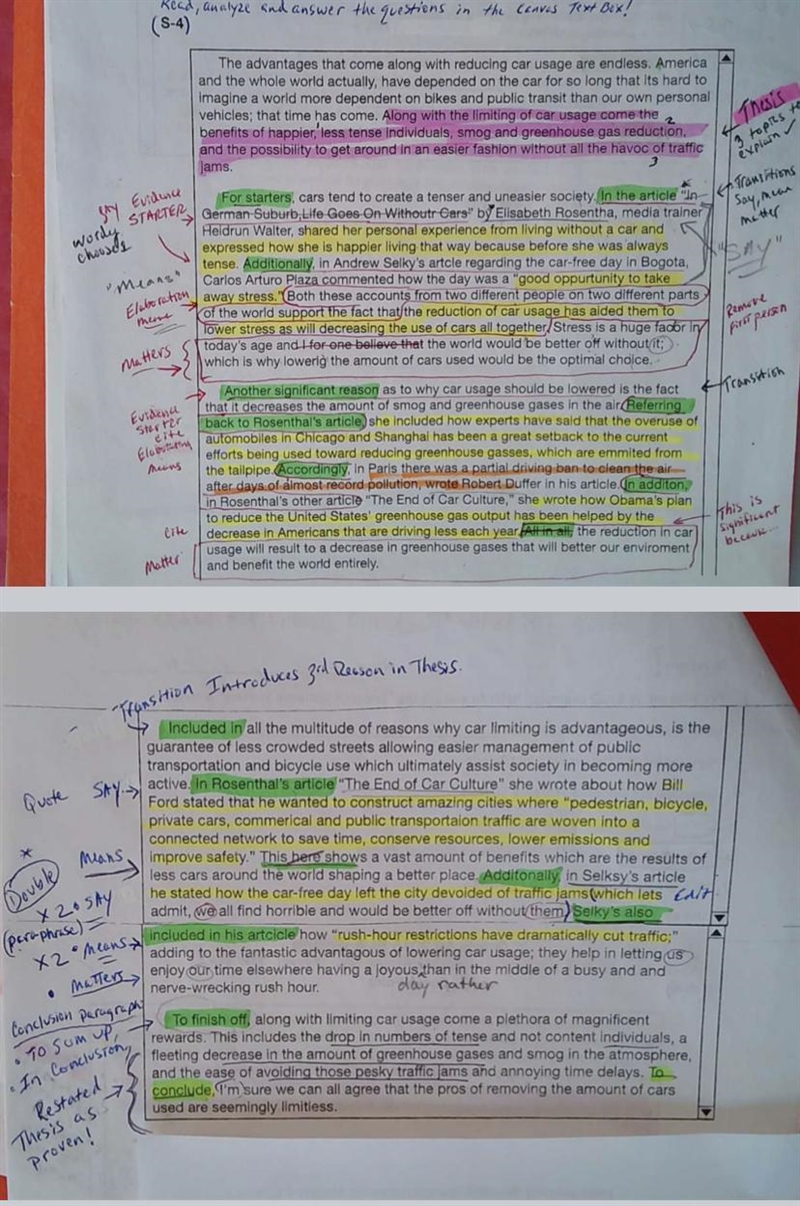 Read, analyze and answer the questions in the Canvas Text Box!
(S-4)
The advantages that come along with reducing car usage are endless. America
and the whole world actually, have depended on the car for so long that its hard to
imagine a world more dependent on bikes and public transit than our own personal
vehicles; that time has come. Along with the limiting of car usage come the
benefits of happier, less tense individuals, smog and greenhouse gas reduction,
and the possibility to get around in an easier fashion without all the havoc of traffic
jams.
1
2
3
Thesis
3 topics to
explain ✓
For starters, cars tend to create a tenser and uneasier society. In the article "In
German Suburb,Life Goes On Withoutr Cars" by Elisabeth Rosentha, media trainer
Heidrun Walter, shared her personal experience from living without a car and
expressed how she is happier living that way because before she was always
tense. Additionally, in Andrew Selky's artcle regarding the car-free day in Bogota,
Carlos Arturo Plaza commented how the day was a "good oppurtunity to take
away stress." Both these accounts from two different people on two different parts
of the world support the fact that the reduction of car usage has aided them to
lower stress as will decreasing the use of cars all together. Stress is a huge facor in
today's age and I for one believe that the world would be better off without it;
which is why lowerig the amount of cars used would be the optimal choice.
Say Evidence
STARTER
wordy
chooses
"Means"
Elaboration
means
Matters
Transitions
Say, mean
matter
"SAY"
Remove
first person
Another significant reason as to why car usage should be lowered is the fact
that it decreases the amount of smog and greenhouse gases in the air. Referring
back to Rosenthal's article, she included how experts have said that the overuse of
automobiles in Chicago and Shanghai has been a great setback to the current
efforts being used toward reducing greenhouse gasses, which are emmited from
the tailpipe. Accordingly, in Paris there was a partial driving ban to clean the air
after days of almost record pollution, wrote Robert Duffer in his article. In additon,
in Rosenthal's other article "The End of Car Culture," she wrote how Obama's plan
to reduce the United States' greenhouse gas output has been helped by the
decrease in Americans that are driving less each year. All in all, the reduction in car
usage will result to a decrease in greenhouse gases that will better our enviroment
and benefit the world entirely.
Transition
Evidence
Starter
cite
Elaborating
means
cite
Matter
This is
significant
because...
Transition Introduces 3rd Reason in Thesis.
Included in all the multitude of reasons why car limiting is advantageous, is the
guarantee of less crowded streets allowing easier management of public
transportation and bicycle use which ultimately assist society in becoming more
active. In Rosenthal's article "The End of Car Culture" she wrote about how Bill
Ford stated that he wanted to construct amazing cities where "pedestrian, bicycle,
private cars, commerical and public transportaion traffic are woven into a
connected network to save time, conserve resources, lower emissions and
improve safety." This here shows a vast amount of benefits which are the results of
less cars around the world shaping a better place. Additonally, in Selksy's article
he stated how the car-free day left the city devoided of traffic jams (which lets
admit, we all find horrible and would be better off without them.) Selky's also
included in his artcicle how "rush-hour restrictions have dramatically cut traffic;"
adding to the fantastic advantagous of lowering car usage; they help in letting us
enjoy our time elsewhere having a joyous than in the middle of a busy and and
nerve-wrecking rush hour.
day rather
Edit
Quote SAY
Means
*
Double
x 2 • SAY
(paraphrase)
x 2 • Means
• Matters
To finish off, along with limiting car usage come a plethora of magnificent
rewards. This includes the drop in numbers of tense and not content individuals, a
fleeting decrease in the amount of greenhouse gases and smog in the atmosphere,
and the ease of avoiding those pesky traffic jams and annoying time delays. To
conclude, I'm sure we can all agree that the pros of removing the amount of cars
used are seemingly limitless.
Conclusion paragraph
• To sum up,
• In Conclusion,
Restated
Thesis as
proven!